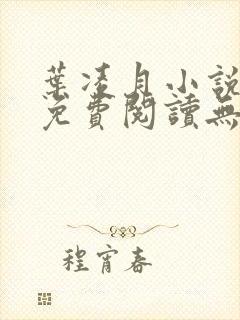 葉凌月小說
免費閱讀無
程宵春